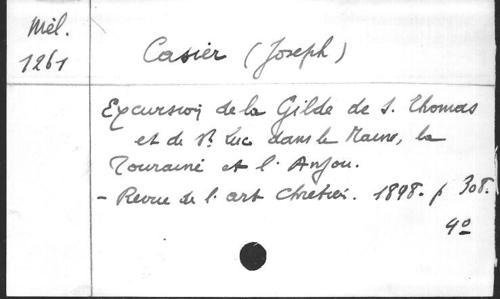 Mél.
1261
Casier (Joseph)
Excursion de la Gilde de S. Thomas
et de St. Luc dans le Maine, la
Touraine et l'Anjou.
- Revue de l'art Chrétien. 1898. p 308.
4o